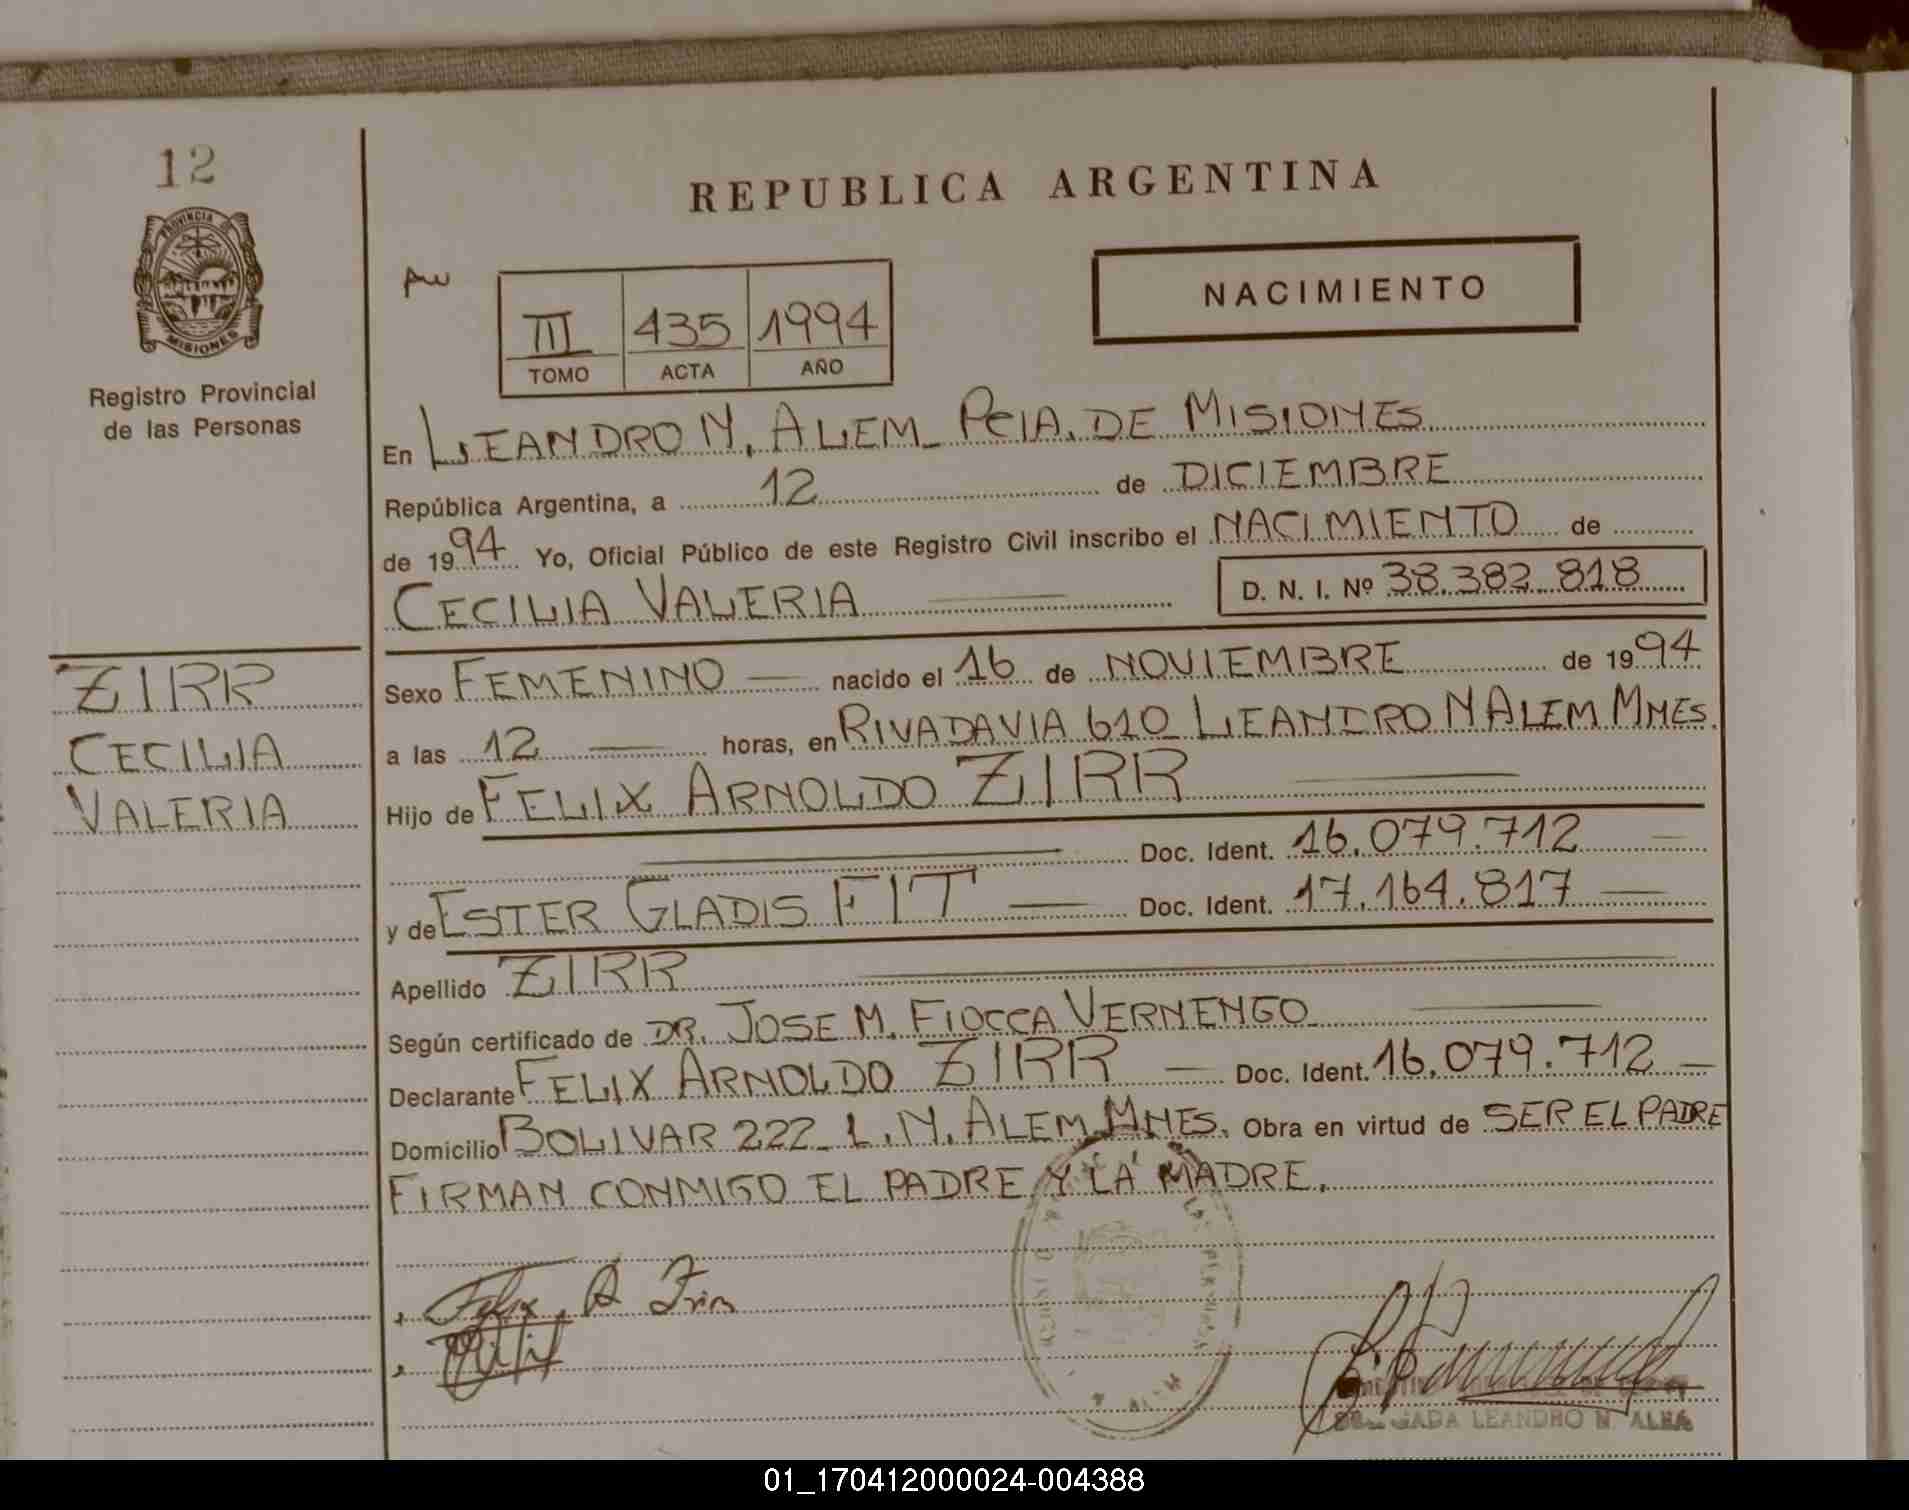 12
PROVINCIA DE
MISIONES
Registro Provincial
de las Personas
REPUBLICA ARGENTINA
NACIMIENTO
III 435 1994
TOMO ACTA AÑO
En LEANDRO N. ALEM - PCIA. DE MISIONES
República Argentina, a 12 de DICIEMBRE
de 1994 Yo, Oficial Público de este Registro Civil inscribo el NACIMIENTO de
CECILIA VALERIA D. N. I. Nº 38.382.818
ZIRR
CECILIA
VALERIA
Sexo FEMENINO — nacido el 16 de NOVIEMBRE de 1994
a las 12 — horas, en RIVADAVIA 610 LEANDRO N ALEM MNES.
Hijo de FELIX ARNOLDO ZIRR
Doc. Ident. 16.079.712
y de ESTER GLADIS FIT — Doc. Ident. 17.164.817 —
Apellido ZIRR
Según certificado de DR. JOSE M. FIOCCA VERNENGO
Declarante FELIX ARNOLDO ZIRR — Doc. Ident. 16.079.712 —
Domicilio BOLIVAR 222 - L.N. ALEM MNES. Obra en virtud de SER EL PADRE
FIRMAN CONMIGO EL PADRE Y LA MADRE.
Felix A Zirr
LEANDRO N. ALEM
01_170412000024-004388